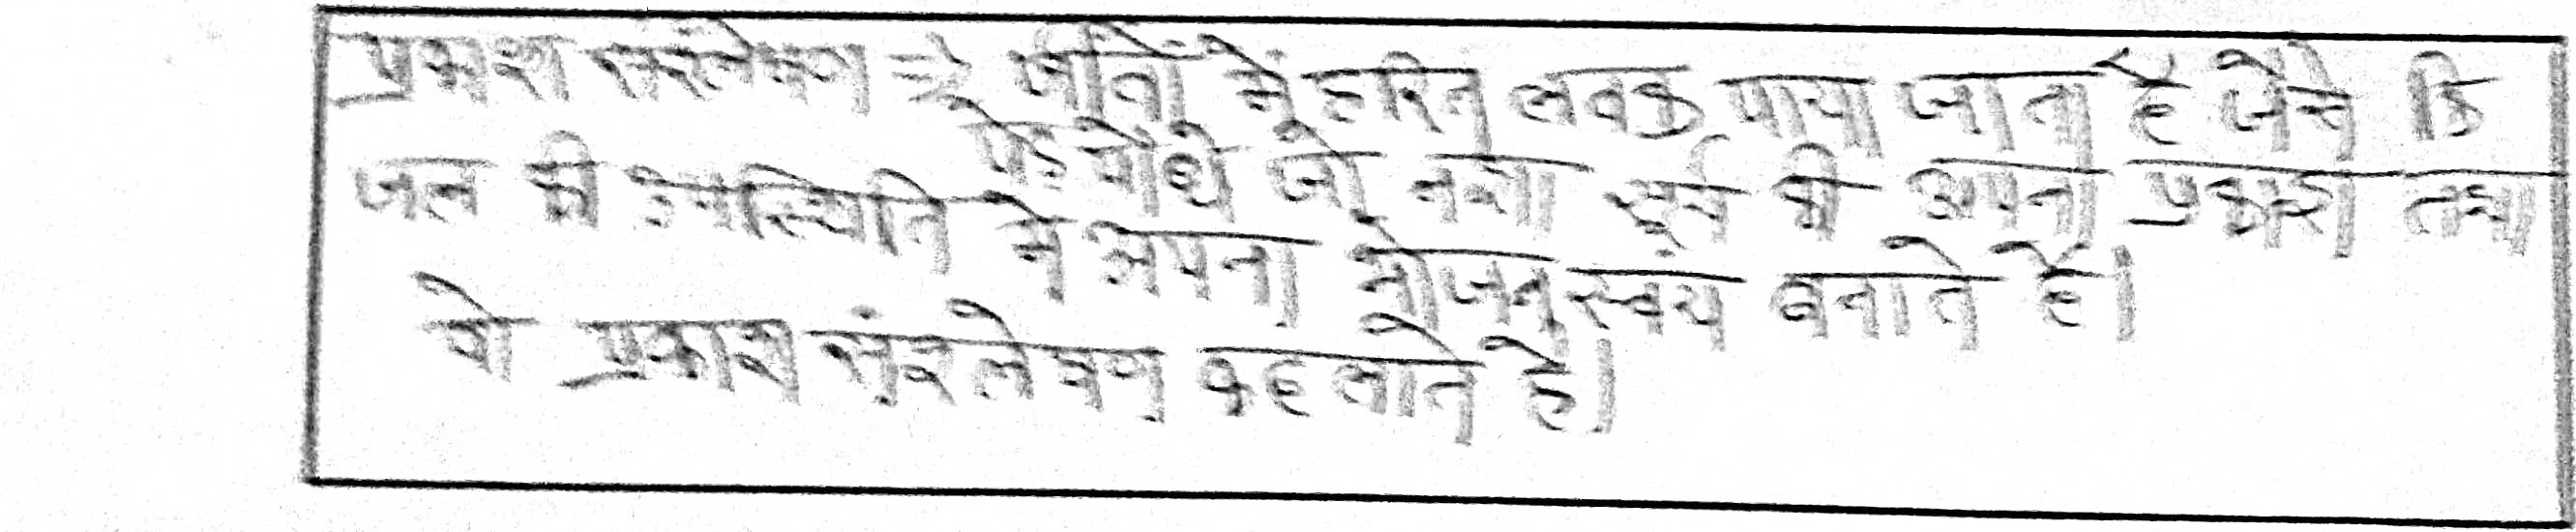 प्रकाश संश्लेषण के जीवों में हरित लवक पाया जाता है जैसे कि
पेड़ पौधे जो तथा सूर्य की अपना प्रकाश तथा
जल की उपस्थिति में अपना भोजन स्वंय बनाते है।
वो प्रकाश संश्लेषण कहलाते है।